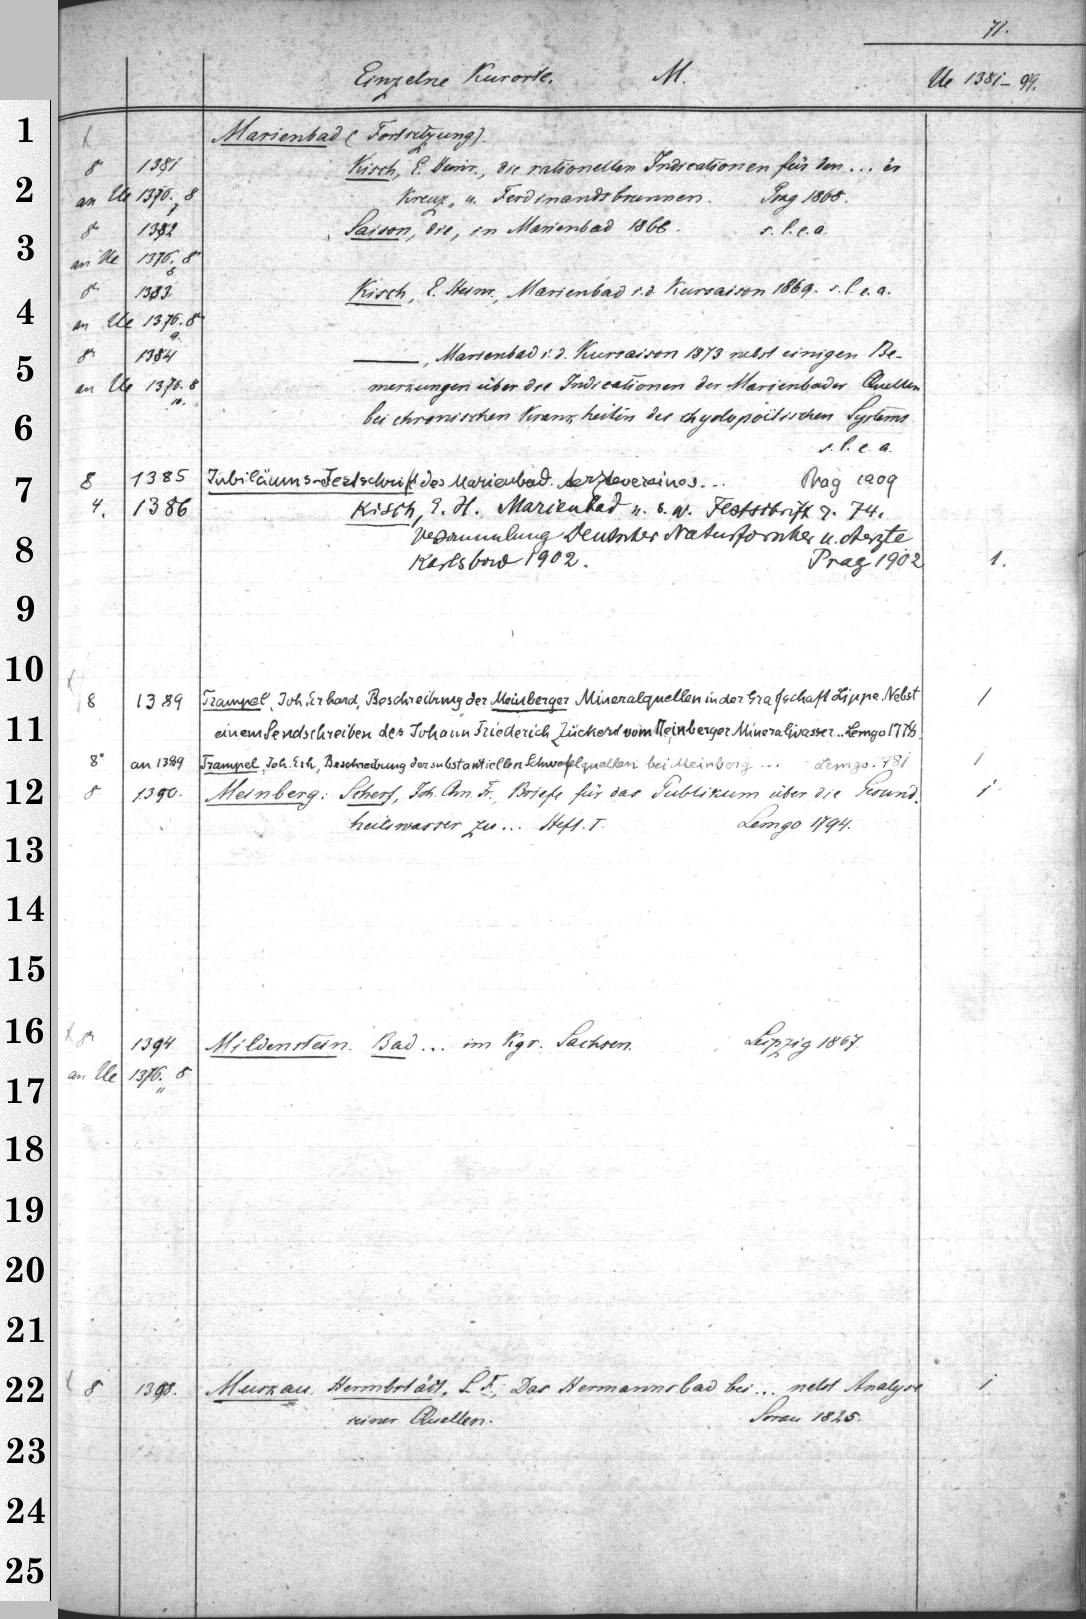 71.
Einzelne Kurorte. M. Ue 1381-99.
1
Marienbad (Fortsetzung).
8° 1381 Kisch, E. Heinr., die rationellen Indicationen für den ... er
2
an Ue 1376. 8 Kreuz- u. Ferdinandsbrunnen. Prag 1868.
7
8° 1382 Saison, die, in Marienbad 1868. s. l. e. a.
3
an Ue 1376. 8°
8
8° 1383 Kisch, E. Heinr., Marienbad i. d. Kursaison 1869. s. l. e. a.
4
an Ue 1376. 8°
9.
8° 1384 ———, Marienbad i. d. Kursaison 1873 nebst einigen Be-
5
an Ue 1376. 8 merkungen über die Indicationen der Marienbader Quellen
10.
bei chronischen Krankheiten des chylopoëtischen Systems
6
s. l. e. a.
8 1385 Jubiläums-Festschrift des Marienbad. Aerztevereines... Prag 1909
7
4. 1386 Kisch, E. H. Marienbad u. s. w. Festschrift z. 74.
Versammlung Deutscher Naturforscher u. Aerzte
8
Karlsbad 1902. Prag 1902 1.
9
10
8 1389 Trampel, Joh. Erhard, Beschreibung der Meinberger Mineralquellen in der Grafschaft Lippe. Nebst 1
11
einem Sendschreiben des Johann Friederich Zückert vom Meinberger Mineralwasser.. Lemgo 1778.
8° an 1389 Trampel, Joh. Erh., Beschreibung der substantiellen Schwefelquellen bei Meinberg ... Lemgo. 781 1
12
8 1390. Meinberg: Scherf, Joh. Chn. Fr., Briefe für das Publikum über die Gesund- 1
heilswasser zu ... Heft. I. Lemgo 1794.
13
14
15
16
8° 1394 Mildenstein. Bad ... im Kgr. Sachsen. Leipzig 1867.
an Ue 1376. 8
11
17
18
19
20
21
22
8 1398. Muskau. Hermbstädt, S. F., Das Hermannsbad bei ... nebst Analyse 1
seiner Quellen. Sorau 1825.
23
24
25